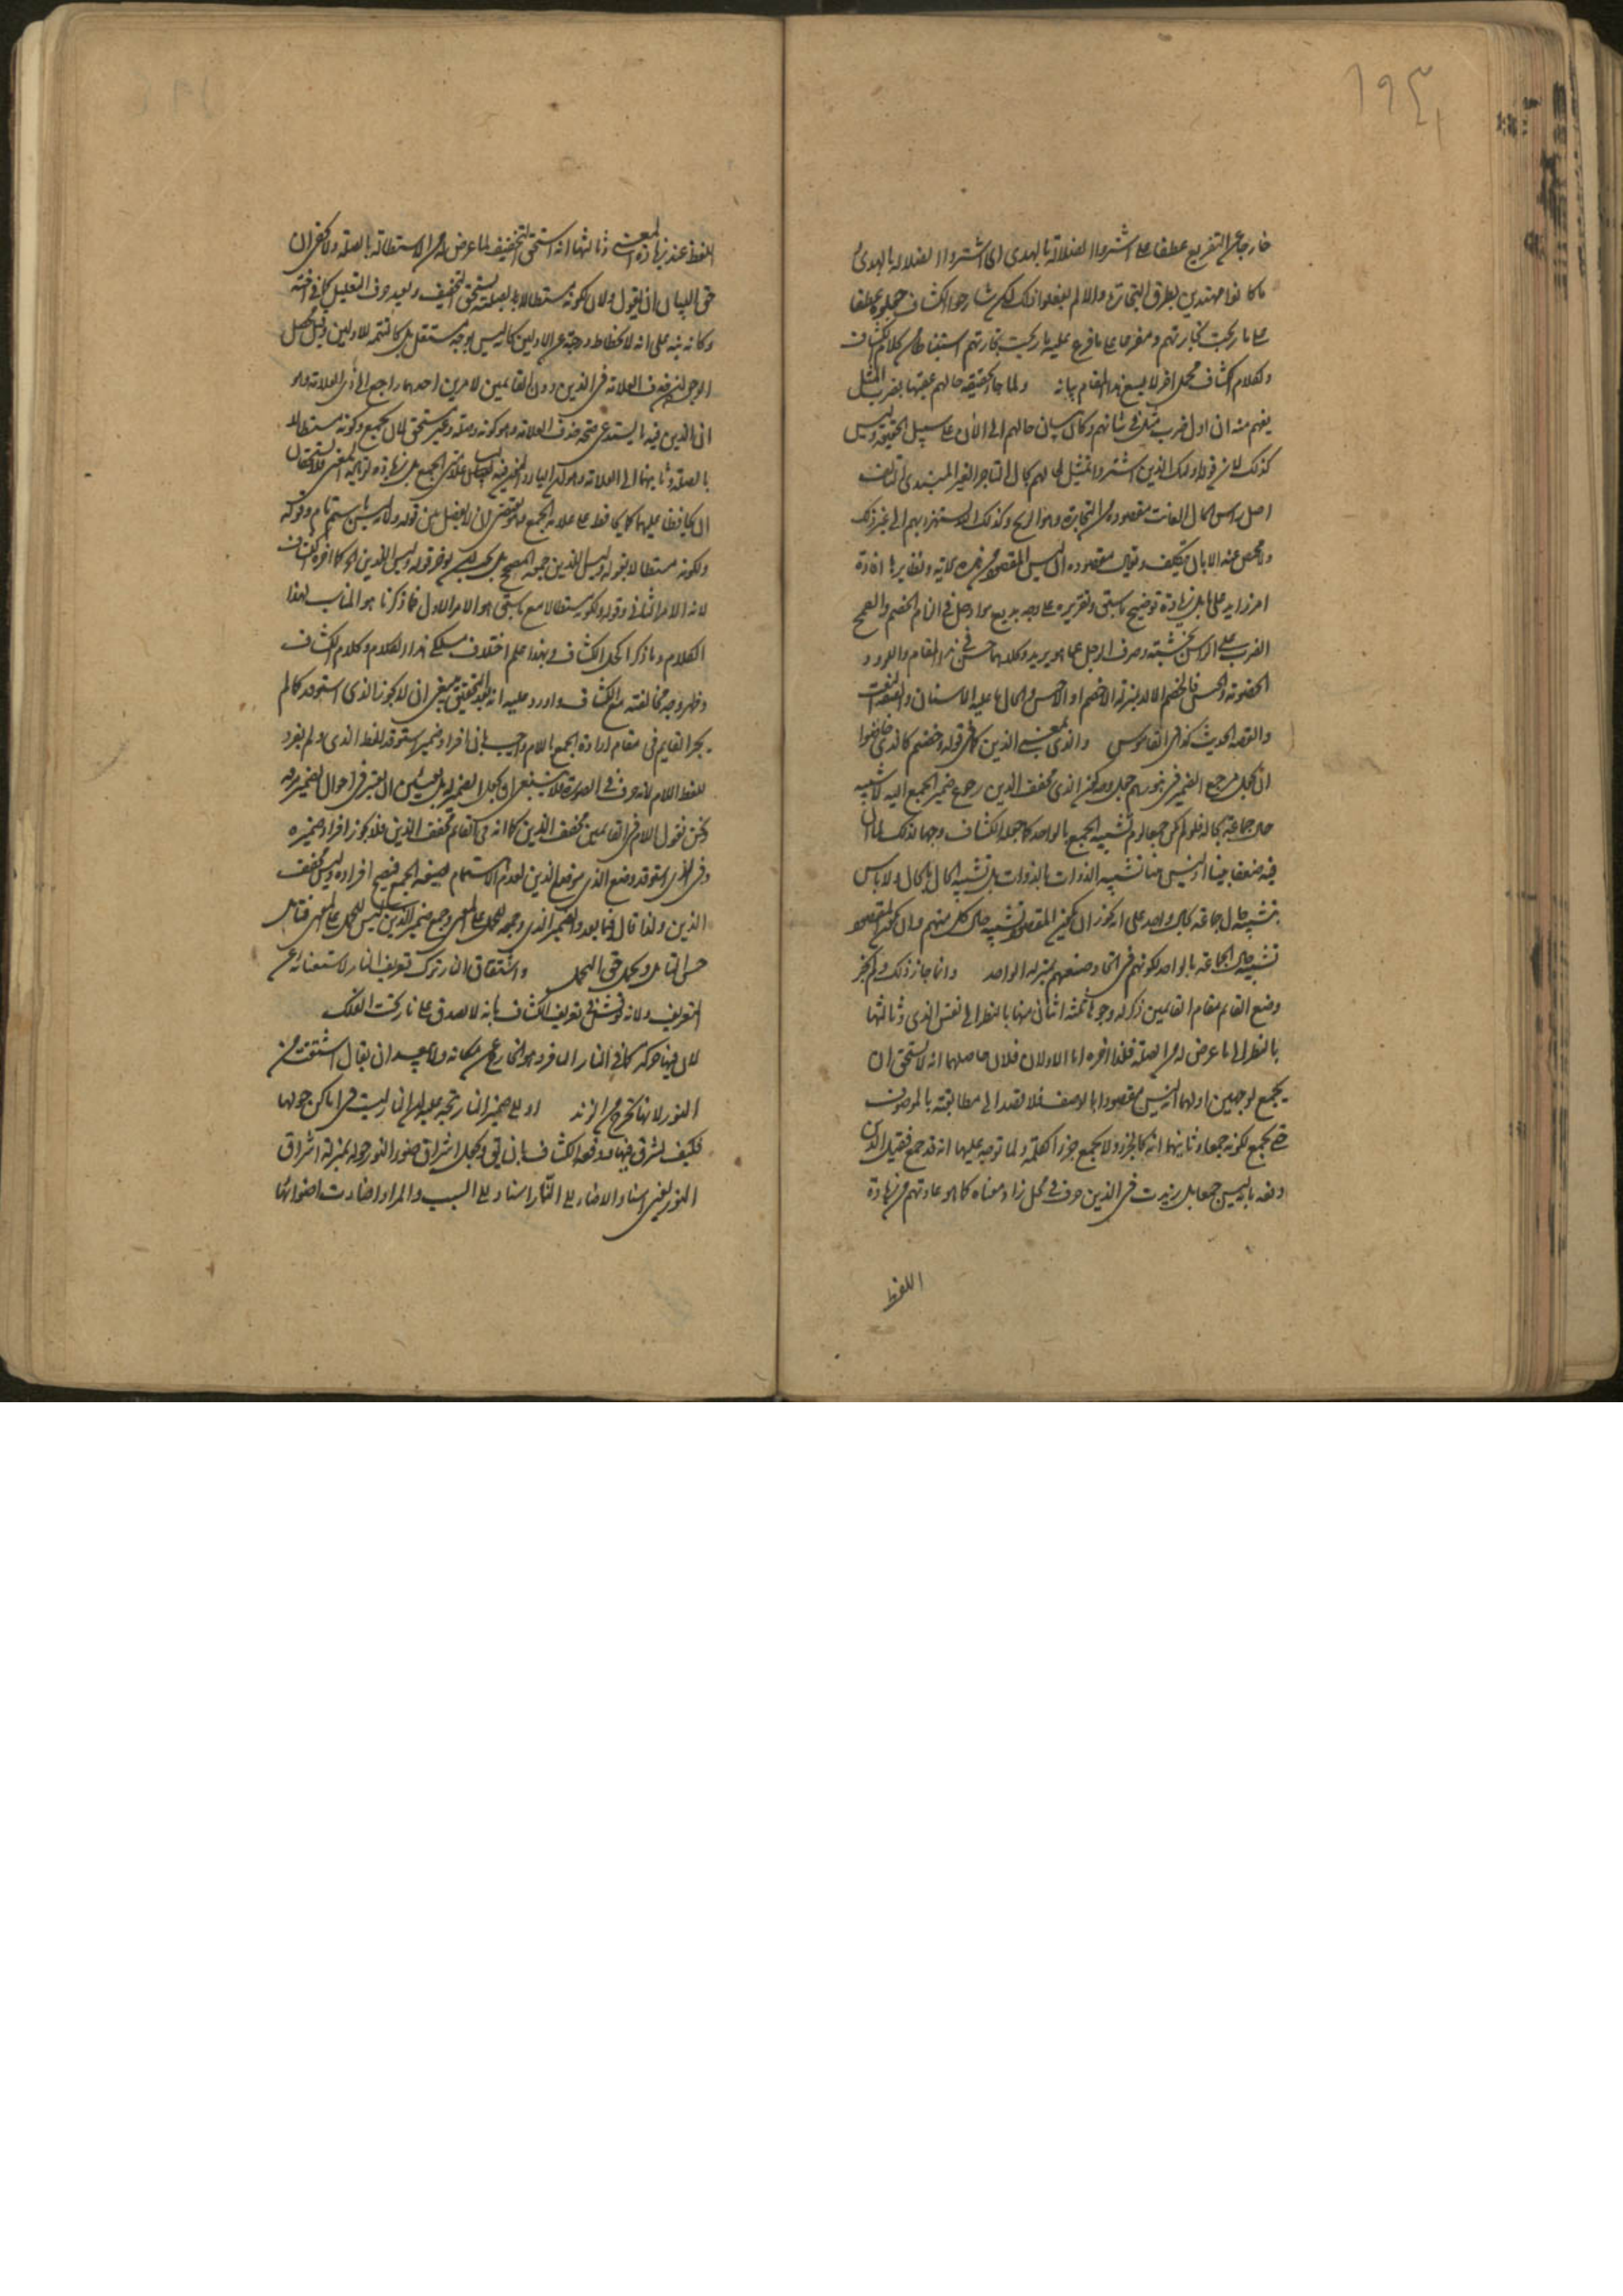 ١٩٤
خارجا عن التفريع عطفا على اشتروا الضلالة بالهدى اى اشتروا الضلالة بالهدى
ما كانوا مهتدين بطرق التجارة والا لم يفعلوا ذلك لكن شارحوا الكشاف جعلوه عطفا
على ما ربحت تجارتهم ومفرعا على ما فرع عليه ما ربحت تجارتهم استنباطا من كلام الكشاف
ولكلام الكشاف محمل اخر لا يسع هذا المقام بيانه ولما جاء بحقيقة حالهم عقبها بضرب المثل
يفهم منه ان اول ضرب مثل فى شانهم وكان بيان حالهم الى الان على سبيل الحقيقة وليس
كذلك لان قوله اولئك الذين اشتروا تمثيل لحالهم بحال التاجر الغير المهتدى
اصل راس المال الفائت مقصوده من التجارة وهو الربح وكذلك الله يستهزئ بهم الى غير ذلك
ولا محيص عنه الا بان يتكلف ويقال مقصوده ان ليس المقصود من هذه الاية ونظايرها افادة
امر زايد على ما قبل بل زيادة توضيح ما سبق وتقريره على وجه بديع
الضرب على الراس بخشبة وصرف الرجل عما يريد وكلاهما حسن فى هذا المقام واللدد
الخصومة
والقصة الحديث كذا فى القاموس والذى بمعنى الذين كما فى قوله وخضتم كالذى خاضوا
ان جعل مرجع الضمير فى بنورهم جعل وجه كون الذى مخفف الذين رجوع ضمير الجمع اليه لا تشبيه
حال جماعة بحاله فلو لم يكن جمعا لزم تشبيه الجمع بالواحد كما جعله الكشاف وجها لذلك لما ان
فيه ضعفا بينا اذ ليس هنا تشبيه الذوات بالذوات بل تشبيه الحال بالحال ولا باس
بتشبيه حال جماعة بحال واحد على انه يجوز ان يكون المقصود تشبيه حال كل منهم وان يكون المقصود
تشبيه حال الجماعة بالواحد لكونهم فى اتحاد صنعهم بمنزلة الواحد وانما جاز ذلك ولم يجز
وضع القايم مقام القايمين ذكر له وجوها ثلثة اثنان منها بالنظر الى نفس الذى وثالثها
بالنظر الى ما عرض له من الصلة فلذا اخره اما الاولان فلان حاصلهما انه لا يستحق ان
يجمع لوجهين اولهما انه ليس مقصودا بالوصف فلا يقصد الى مطابقته بالموصوف
حتى يجمع لكونه جمعا وثانيهما انه كالجزء ولا يجمع جزء الكلمة ولما توجه عليهما انه قد جمع فقيل الذين
دفعه بانه ليس جمعا بل زيدت فى الذين حرف فى محل زاد معناه كما هو عادتهم من زيادة
اللفظ
اللفظ عند زيادة المعنى وثالثها انه استحق التخفيف لما عرض له من الاستطالة بالصلة ولا يخفى ان
حق البيان ان يقول ولان لكونه مستطالا بالصلة يستحق التخفيف ويعيد حرف التعليل كما فى اخته
وكانه نبه على انه لانحطاط درجته عن الاولين كانه ليس بوجه مستقل بل كالتتمة للاولين وقيل محصل
الوجه الذى حذف العلامة فى الذين دون القايمين لامرين احدهما راجع الى ذى العلامة وهو
ان الذين فيه ما يستدعى صحة حذف العلامة وهو كونه وصلة وغير مستحق لان يجمع وكونه مستطالا
بالصلة وثانيهما الى العلامة وهو ان الياء والنون فيه ليس علامتى الجمع بل زيادة لزيادة المعنى فلا يستحقان
ان يحافظ عليهما كما يحافظ على علامة الجمع وهو يقتضى ان لا يفصل بين قوله ولانه ليس باسم تام وقوله
ولكونه مستطالا بقوله وليس الذين جمعه المصحح بل يجب ان يؤخر قوله وليس الذين الخ كما اخره الكشاف
لانه الامر الثانى وقوله ولكونه مستطالا مع ما سبق هو الامر الاول فما ذكرنا هو المناسب لهذا
الكلام وما ذكر لحل الكشاف وبهذا علم اختلاف مسلكى هذا الكلام وكلام الكشاف
وظهر وجه مخالفته مع الكشاف واورد عليه انه بعد التخفيف ينبغى ان لا يجوز الذى استوقد كما لم
يجز القايم فى مقام ارادة الجمع باللام واجيب بان افراد ضمير استوقد للفظ الذى ولم يفرد
للفظ اللام لانه حرف فى الصورة فلا ينبغى ان يجعل الضمير له
ونحن نقول اللام فى القايمين مخفف الذين كما انه فى القايم مخفف الذى فلا يجوز افراد ضميره
وفى الذى استوقد وضع الذى موضع الذين لعدم الاهتمام بصيغة الجمع فيصح افراده وليس مخفف
الذين ولذا قال فيما بعد والضمير للذى وجمعه للحمل على المعنى وجمع ضمير الذين ليس للحمل على المعنى فتامل
حق التامل وتحمل حق التحمل واشتقاق النار ترك تعريف النار لاستغنائه عن
التعريف ولانه نوقش فى تعريف الكشاف بانه لا يصدق على نار تحت الفلك
لان فيها حركة كما فى النار النافرة وهو انخار عن مكانه ولا يبعد ان يقال اشتقت من
النور لانها تخرج من الزند او الى ضمير النار تجه عليه ان النار ليست فى اماكن حولها
فكيف تشرق فيها ودفعه الكشاف بان يجعل اشراق ضوء النور حوله بمنزلة اشراق
النور يعنى اسناد الاضاءة الى النار اسناد الى السبب والمراد اضاءت اضوائها